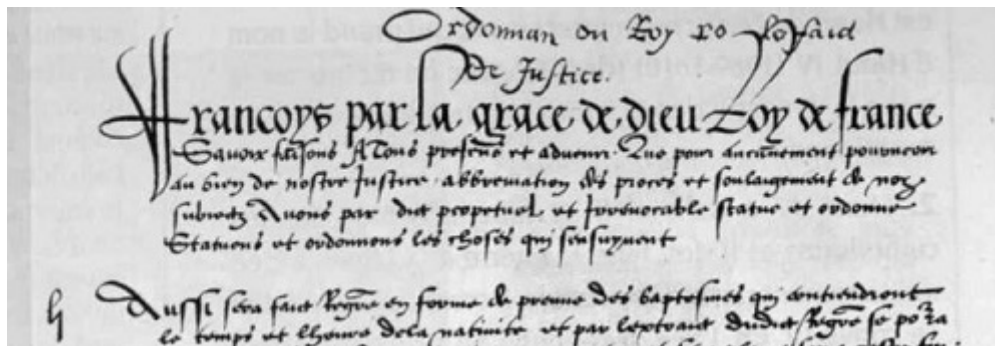 Ordonnan du Roy po le faict
De Justice.
Francoys par la grace de dieu Roy de france
Savoir faisons A tous presens et advenir Que pour aucunement pourveoir
au bien de nostre Justice abbreviation des proces et soulaigement de noz
subiectz Avons par edict perpetuel et Irrevocable statue et ordonne
Statuons et ordonnons les choses qui sensuyvent
Aussi sera faict Regre en forme de preuve des baptesmes qui contiendront
le temps et lheure dela nativite et par lextraict dudict Regre se pora